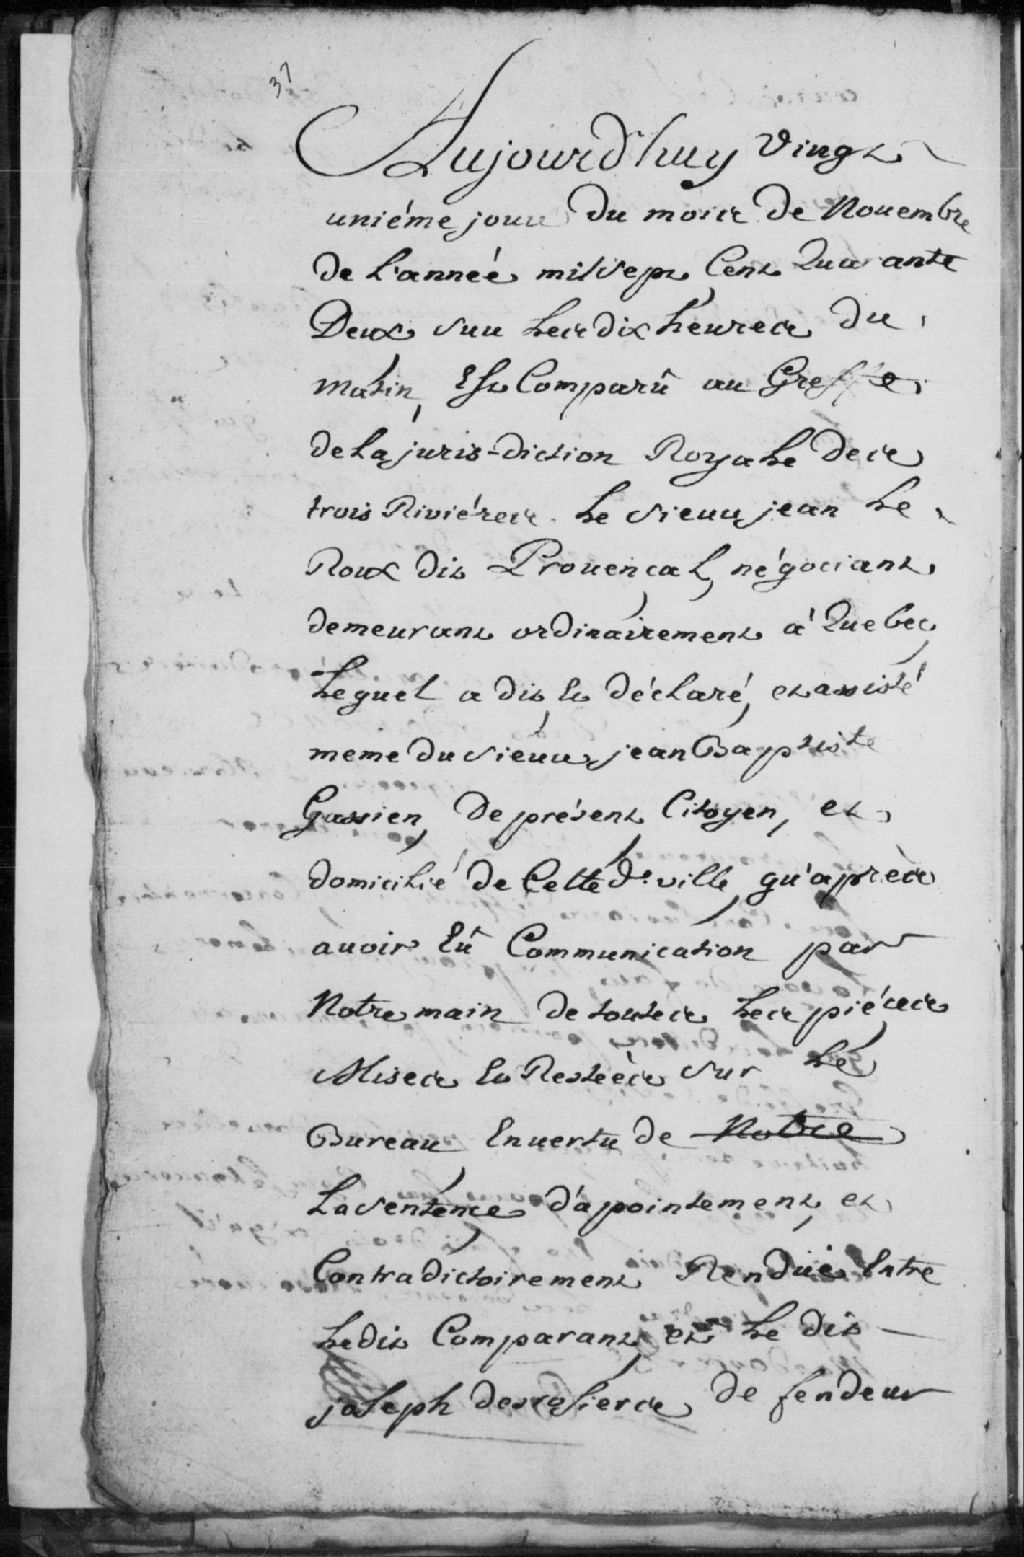 37
Aujourd'huy vingt
uniéme jour du mois de Nouembre
de L'année mil sept Cent Quarante
Deux sur Les dix heures du
matin, Est Comparû au Greffe
de La juris-diction Royale des
trois Riviéres Le sieur jean Le
Roux dit Prouençal, négociant
demeurant ordinairement à Quebec,
Lequel a dit Et déclaré, et assisté
meme du sieur jean Baptiste
Gassien, de présent Citoyen, et
domicilié de Cette de. ville, qu'aprèes
auoir Eû Communication par
Notre main de toutes Les piéces
Mises Et Restéès sur Le
Bureau En uertu de Notre
La sentence d'apointement, et
Contradictoirement Renduë Entre
Ledit Comparant et Le dit
joseph descasiers de fendeur